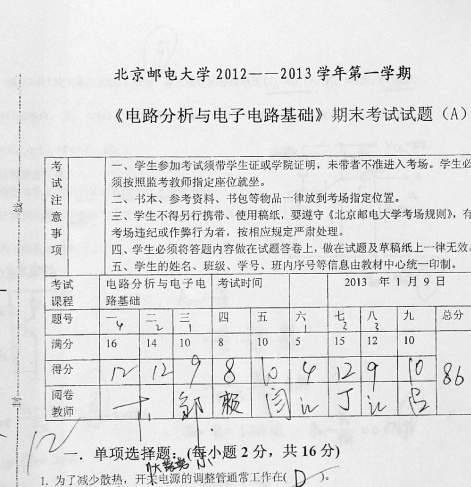 北京邮电大学 2012——2013 学年第一学期
《电路分析与电子电路基础》期末考试试题（A）
考试注意事项
一、学生参加考试须带学生证或学院证明，未带者不准进入考场。学生必
须按照监考教师指定座位就坐。
二、书本、参考资料、书包等物品一律放到考场指定位置。
三、学生不得另行携带、使用稿纸，要遵守《北京邮电大学考场规则》，有
考场违纪或作弊行为者，按相应规定严肃处理。
四、学生必须将答题内容做在试题答卷上，做在试题及草稿纸上一律无效。
五、学生的姓名、班级、学号、班内序号等信息由教材中心统一印制。
考试课程 电路分析与电子电路基础 考试时间 2013 年 1 月 9 日
题号 一 二 三 四 五 六 七 八 九 总分
4 2 1 1 3 3
满分 16 14 10 8 10 5 15 12 10
得分 12 12 9 8 10 4 12 9 10 86
阅卷教师
12
一．单项选择题：(每小题 2 分，共 16 分)
1. 为了减少散热，开关电源的调整管通常工作在( D )。